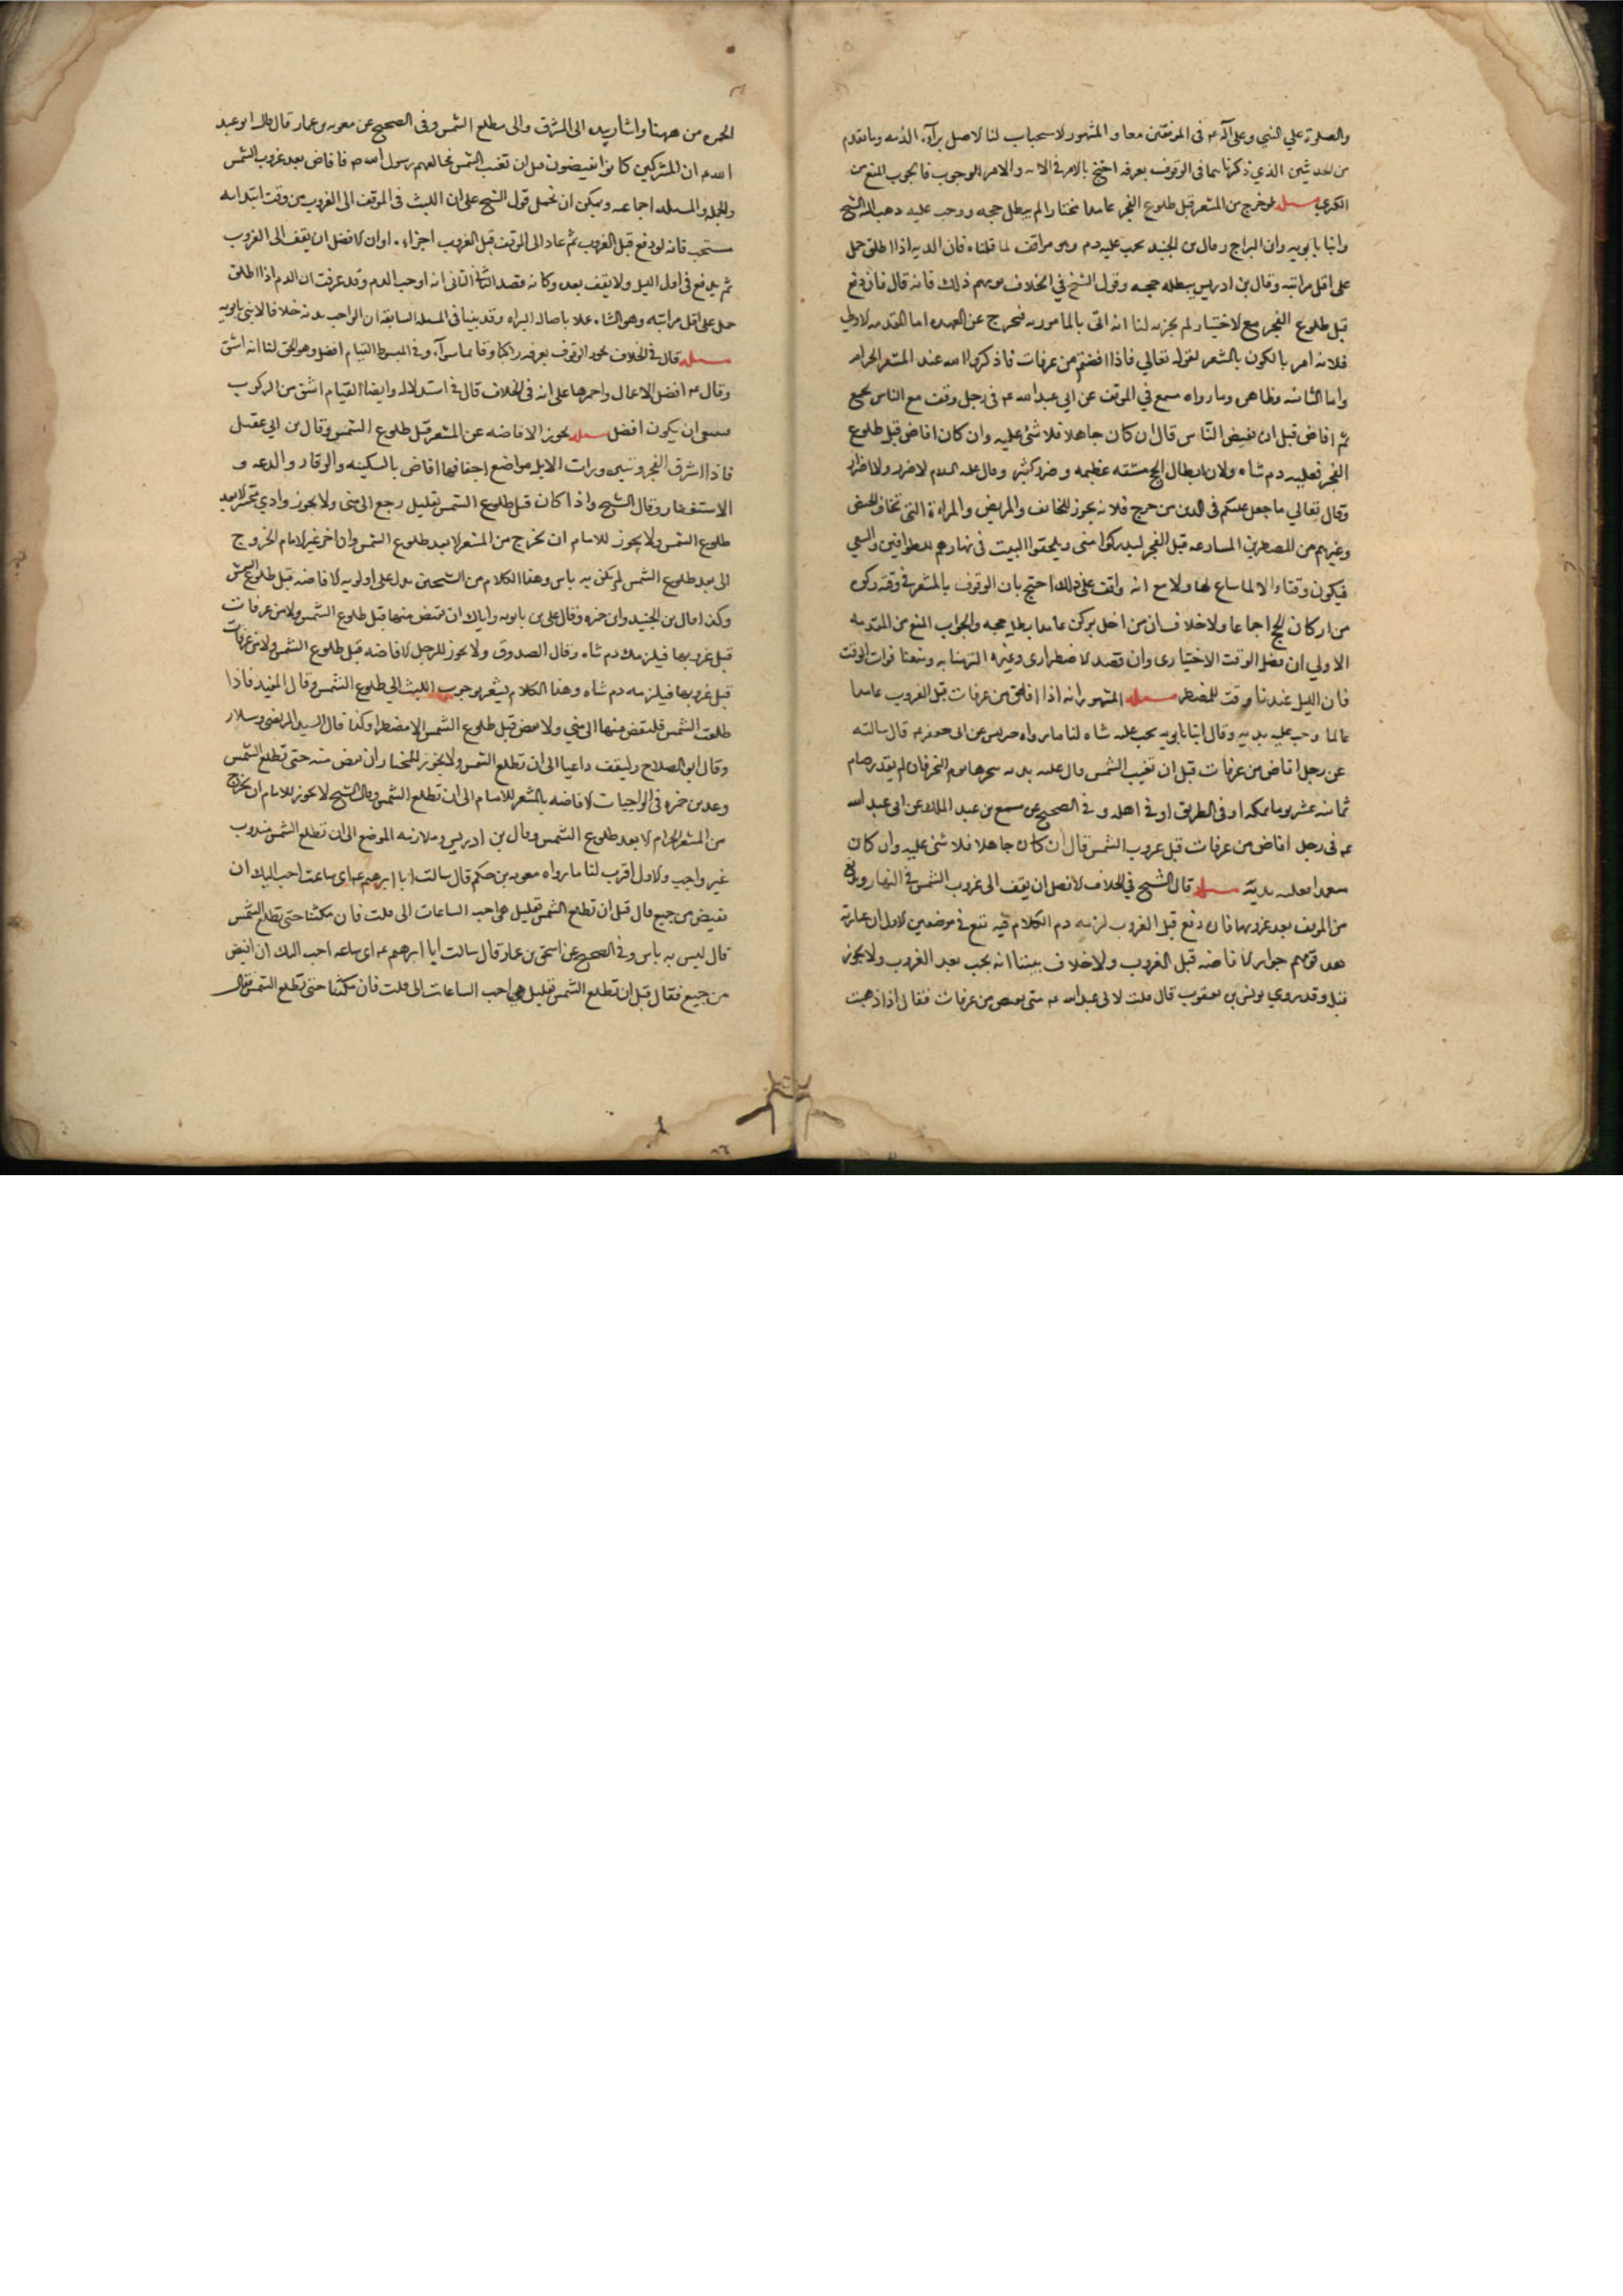 والصلوة علي النبي وعلى آله ع م فى الموقفين معا و المشهور لاستحباب لنا لاصل براءة الذمه وماتقدم
من الحديثين الذي ذكرناهما فى الوقوف بعرفه احتج بالامر فى الايه و الامر للوجوب فالجوب المنع من
الكبرى مسله لو خرج من المشعر قبل طلوع الفجر عامدا مختارا لم يبطل حجه ووجب عليه دم قاله الشيخ
وابنا بابويه وابن البراج وقال بن الجنيد يجب عليه دم وهو موافق لما قلناه فان الدم اذا اطلق حمل
على اقل مراتبه وقال بن ادريس يبطله حجه وقول الشيخ في الخلاف موهم ذلك فانه قال فان دفع
قبل طلوع الفجر مع لاختيار لم يجزه لنا انه اتى بالمامور به فيخرج عن العهده اما المقدمه لاولي
فلانه امر بالكون بالمشعر لقوله تعالي فاذا افضتم من عرفات فاذكروا الله عند المشعر الحرام
واما الثانيه فظاهر وما رواه مسمع في الموثق عن ابي عبد الله ع م فى رجل وقف مع الناس بجمع
ثم افاض قبل ان يفيض الناس قال ان كان جاهلا فلا شئ عليه وان كان افاض قبل طلوع
الفجر فعليه دم شاه ولان ابطال الحج مشقه عظيمه وضرر كثير وقال عليه السلام لا ضرر ولا اضرار
وقال تعالي ما جعل عليكم فى الدين من حرج فلانه يجوز للخائف والمريض والمراة التى تخاف الحيض
وغيرهم من المضطرين المسارعه قبل الفجر ليدركوا منى ويلحقوا البيت فى نهارهم للطوافين والسعي
فيكون وقتا والا لما ساغ لها ولا مع انه وافق على ذلك احتج بان الوقوف بالمشعر فى وقته ركن
من اركان الحج اجماعا ولا خلاف ان من اخل بركن عامدا بطل حجه والجواب المنع من المقدمه
الاولي ان فضل الوقت الاختيارى وان قصد لاضطرارى وغيره التزمنا به ومنعنا فوات الوقت
فان الليل عندنا وقت للمضطر مسله المشهور انه اذا افاض من عرفات قبل الغروب عامدا
عالما وجب عليه بدنه وقال ابنا بابويه يجب عليه شاه لنا ما رواه ضريس عن ابى جعفر ع م قال سالته
عن رجل افاض من عرفات قبل ان تغيب الشمس قال عليه بدنه ينحرها يوم النحر فان لم يقدر صام
ثمانيه عشر يوما بمكه او فى الطريق او في اهله و فى الصحيح عن مسمع بن عبد الملك عن ابى عبد الله
ع م فى رجل افاض من عرفات قبل غروب الشمس قال ان كان جاهلا فلا شئ عليه وان كان
متعمدا فعليه بدنة مسله قال الشيخ في الخلاف لافضل ان يقف الى غروب الشمس فى النهار ويدفع
من الموقف بعد غروبها فان دفع قبل الغروب لزمه دم الكلام فيه يقع فى موضعين لاول ان عبارته
هذه توهم جواز لافاضه قبل الغروب ولا خلاف بيننا انه يجب بعد الغروب ولا يجوز
قبله وقد روي يونس بن يعقوب قال قلت لابى عبد الله ع م متى نفيض من عرفات فقال اذا ذهبت
الحمره من ههنا واشار بيده الى المشرق والى مطلع الشمس وفى الصحيح عن معويه بن عمار قال قال ابو عبد
الله ع م ان المشركين كانوا يفيضون قبل ان تغيب الشمس فخالفهم رسول الله ص م فافاض بعد غروب الشمس
وبالجمله والمسله اجماعيه ويمكن ان نحمل قول الشيخ على ان اللبث فى الموقف الى الغروب من وقت ابتدائه
مستحب فانه لو دفع قبل الغروب ثم عاد الى الموقف قبل الغروب اجزاه . او ان لافضل ان يقف الى الغروب
ثم يدفع فى اول الليل ولا يقف بعده وكانه قصد الثانى الثانى انه اوجب الدم وقد عرفت ان الدم اذا اطلق
حمل على اقل مراتبه وهو الشاه عملا باصاله البراه وقد بينا فى المسله السابقه ان الواجب بدنه خلافا لابنى بابويه
مسله قال فى الخلاف يجوز الوقوف بعرفه راكبا وقايما سواء وفى المبسوط القيام افضل وهو الحق لنا انه اشق
وقال ع م افضل الاعمال واحمزها على انه فى الخلاف قال فى استدلاله وايضا القيام اشق من الركوب
فينبغى ان يكون افضل مسله يجوز الافاضه عن المشعر قبل طلوع الشمس وقال بن ابي عقيل
فاذا اشرق الفجر وتبين ورات الابل مواضع اخفافها افاض بالسكينه والوقار والدعه و
الاستغفار وقال الشيخ واذا كان قبل طلوع الشمس بقليل رجع الى منى ولا يجوز وادي محسر لا بعد
طلوع الشمس ولا يجوز للامام ان يخرج من المشعر لا بعد طلوع الشمس وان اخر غير لامام الخروج
الى بعد طلوع الشمس لم يكن به باس وهذا الكلام من الشيخين يدل على اولويه لافاضه قبل طلوع الشمس
وكذا قال بن الجنيد وابن حمزه وقال على بن بابويه واياك ان تفيض منها قبل طلوع الشمس ولا من عرفات
قبل غروبها فيلزمك دم شاه وقال الصدوق ولا يجوز للرجل لافاضه قبل طلوع الشمس ولا من عرفات
قبل غروبها فيلزمه دم شاه وهذا الكلام يشعر بوجوب اللبث الي طلوع الشمس وقال المفيد فاذا
طلعت الشمس فليفض منها الى منى ولا يفض قبل طلوع الشمس الا مضطرا وكذا قال السيد المرتضى وسلار
وقال ابو الصلاح وليقف داعيا الى ان تطلع الشمس ولا يجوز للمختار ان يفيض منه حتى تطلع الشمس
وعد بن حمزه فى الواجبات لافاضه بالمشعر للامام الى ان تطلع الشمس وقال الشيخ لا يجوز للامام ان يخرج
من المشعر الحرام لا بعد طلوع الشمس وقال بن ادريس وملازمه الموضع الى ان تطلع الشمس مندوب
غير واجب ولاول اقرب لنا ما رواه معويه بن حكيم قال سالت ابا ابرهيم ع م اى ساعت احب اليك ان
نفيض من جمع قال قبل ان تطلع الشمس بقليل هى احب الساعات الى قلت فان مكثنا حتى تطلع الشمس
قال ليس به باس وفى الصحيح عن اسحق بن عمار قال سالت ابا ابرهيم ع م اى ساعه احب اليك ان افيض
من جمع فقال قبل ان تطلع الشمس بقليل هي احب الساعات الى قلت فان مكثنا حتى تطلع الشمس فقال